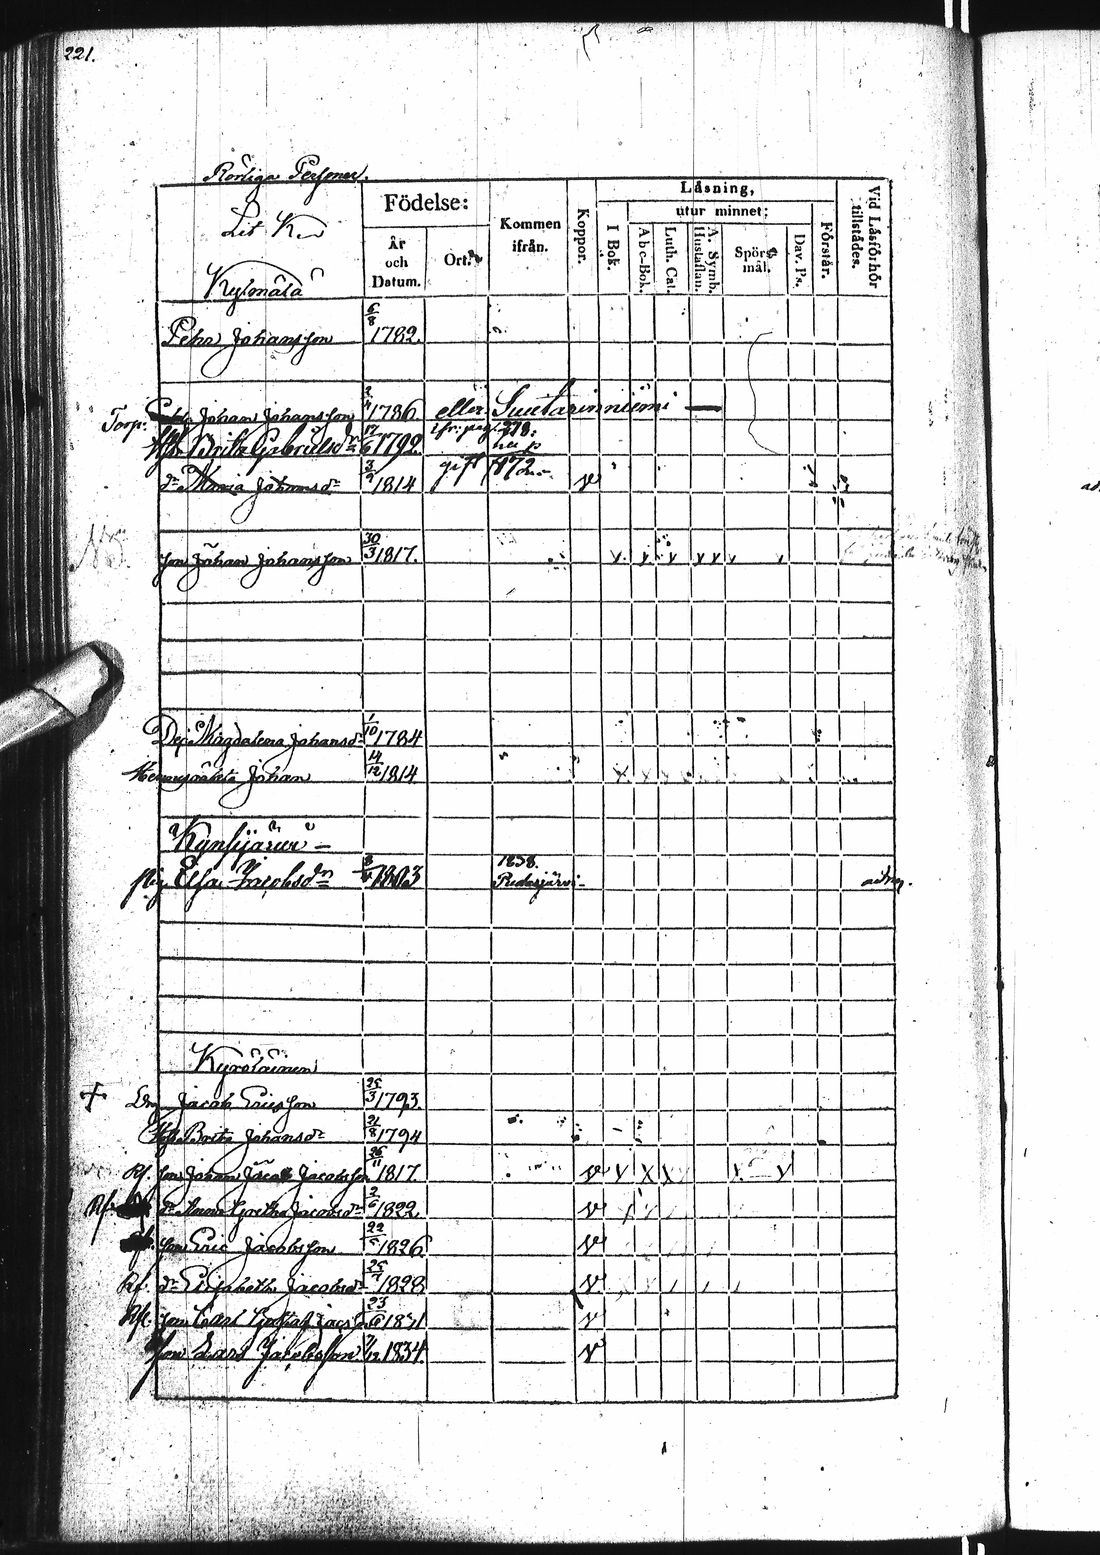 221.
Rörliga Personer.
Lit K
Födelse:
År och Datum.
Ort.
Kommen ifrån.
Koppor.
Läsning,
utur minnet:
I Bok.
Abc-Bok.
Luth. Cat.
A. Symb. Hustaflan.
Spörsmål.
Dav. Ps.
Förstår.
Vid Läsförhör tillstädes.
Kylmälä
Pehr Johansson 6/8 1782.
Torp. Johan Johansson 1786 eller Suutarinniemi
Hu Brita Gabrielsdr 17/6 1792.
dr Maria Johansdr 3/9 1814 gift 1872 v
son Johan Johansson 30/3 1817.
Magdalena Johansdr 1/10 1784
Johan 14/12 1814
Kynsijärvi
pig. Elsa Jacobsdr 1803 1838. Pudasjärvi adm.
Kyröläinen
+ Jacob Ericsson 25/3 1793.
Hu Brita Johansdr 21/8 1794
Rf. son Johan Jacob Jacobsson 26/11 1817. v
Rf. dr Anna Gretha Jacobsdr 2/6 1822 v
son Eric Jacobsson 22/5 1826 v
Rf. dr Elisabeth Jacobsdr 25/7 1828 v
Rf. son Carl Gustaf 23/6 1831 v
son Lars Jacobsson 7/12 1834. v